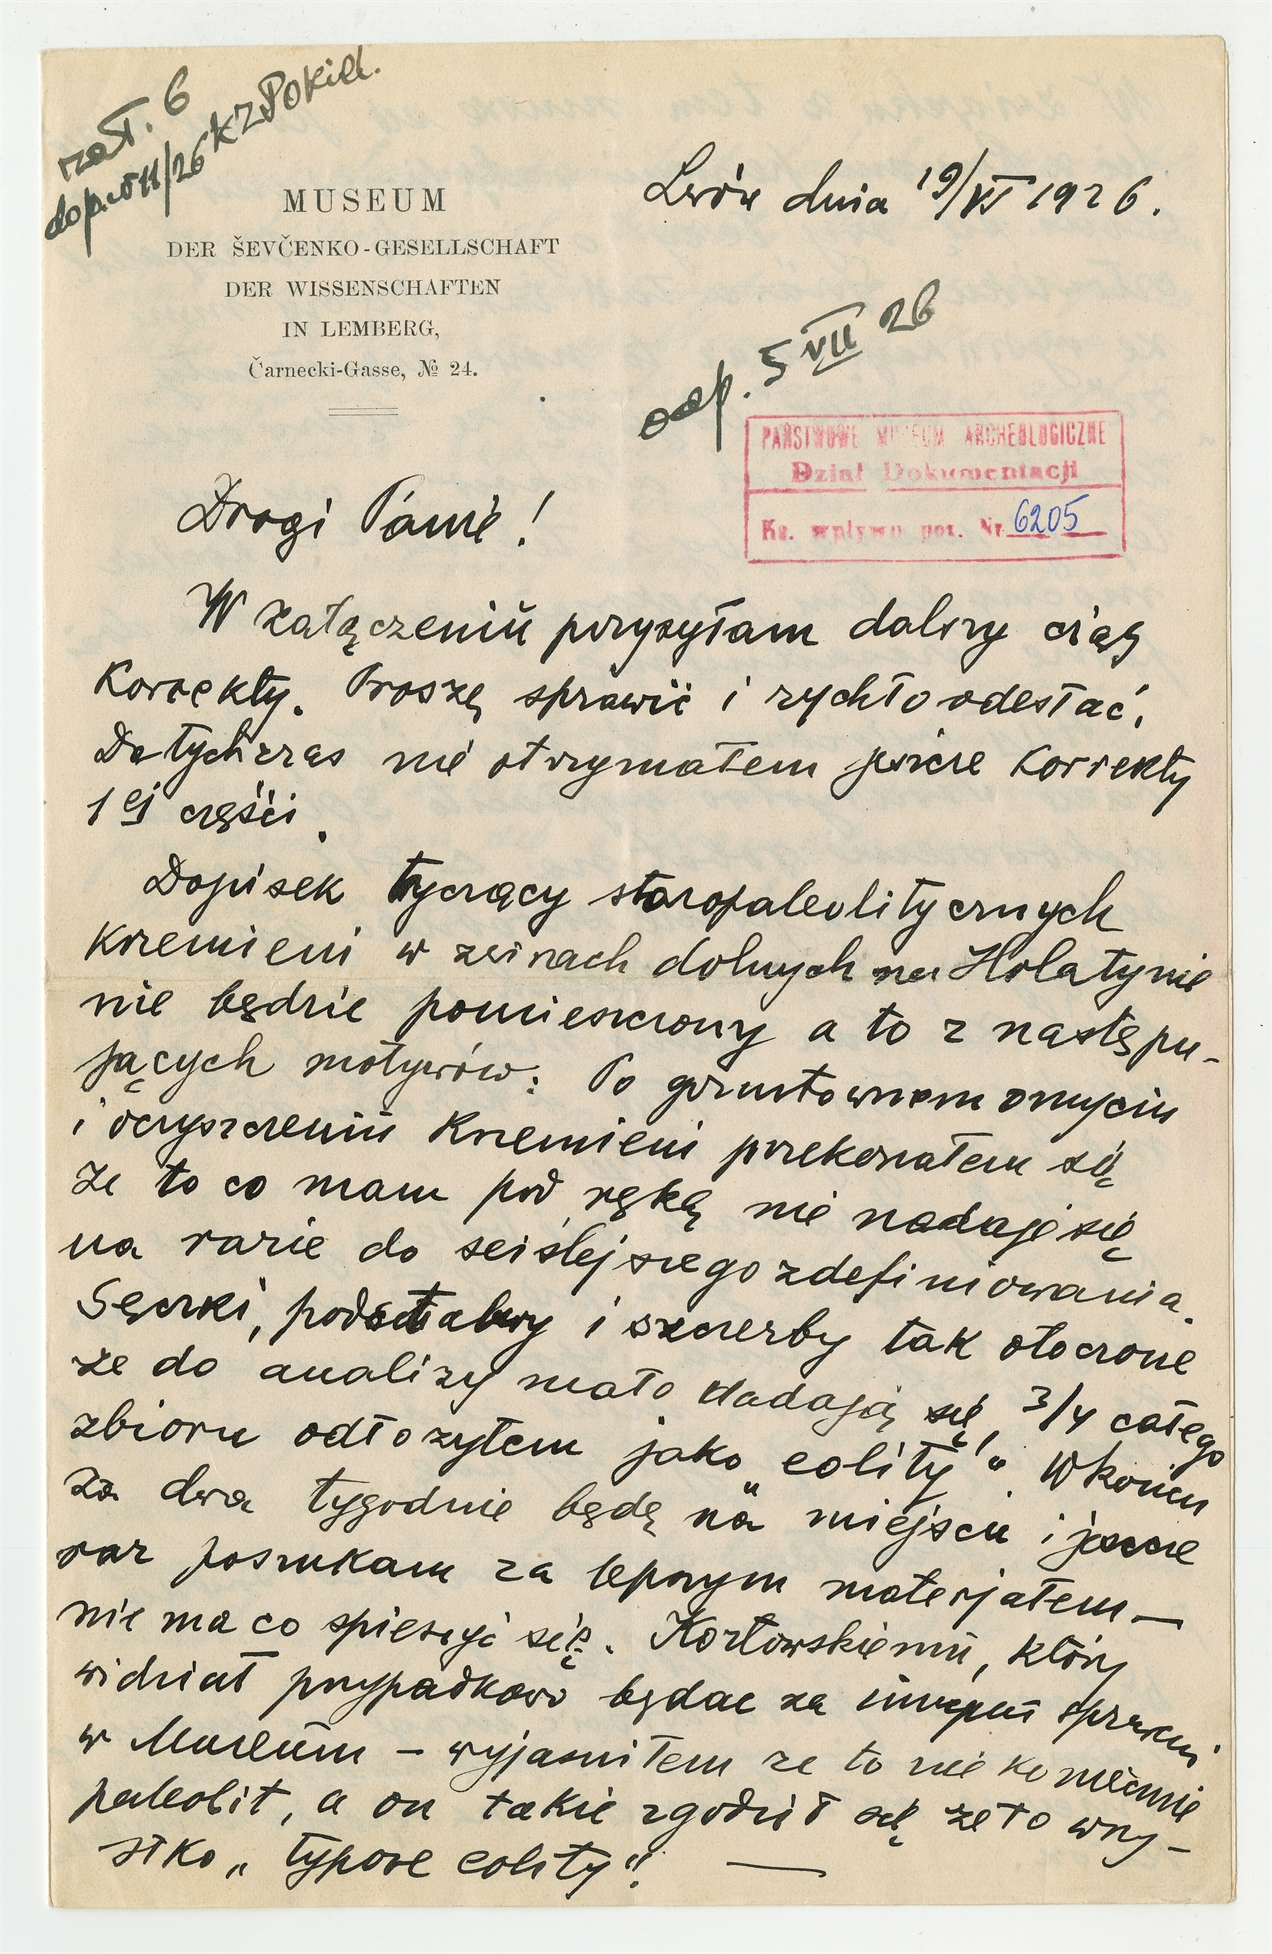 zał. 6
do p. w 11/26 KZPOKIEL.
MUSEUM
DER ŠEVČENKO-GESELLSCHAFT
DER WISSENSCHAFTEN
IN LEMBERG,
Čarnecki-Gasse, № 24.
Lwów dnia 19/VI 1926.
odp. 5 VII 26
PAŃSTWOWE MUZEUM ARCHEOLOGICZNE
Dział Dokumentacji
Ks. wpływu poz. Nr 6205
Drogi Panie!
W załączeniu przysyłam dalszy ciąg
Korrekty. Proszę sprawić i rychło odesłać.
Dotychczas nie otrzymałem jeszcze Korrekty
1ej części.
Dopisek tyczący staropaleolitycznych
krzemieni w żwirach dolnych na Hołatynie
nie będzie pomieszczony a to z następu-
jących motywów: Po gruntownem omyciu
i oczyszczeniu krzemieni przekonałem się
że to co mam pod ręką nie nadaje się
na razie do ściślejszego zdefiniowania.
Sęczki, podstawy i szczerby tak otoczone
że do analizy mało dadają się, 3/4 całego
zbioru odłożyłem jako „eolity". W końcu
za dwa tygodnie będę na miejscu i jeszcze
raz poszukam za lepszym materjałem —
nie ma co spieszyć się. Kozłowskiemu, który
widział przypadkowo będąc za innymi sprawami
w Museum – wyjaśniłem że to nie koniecznie
paleolit, a on także zgodził się że to wszy-
stko „typowe eolity"! —